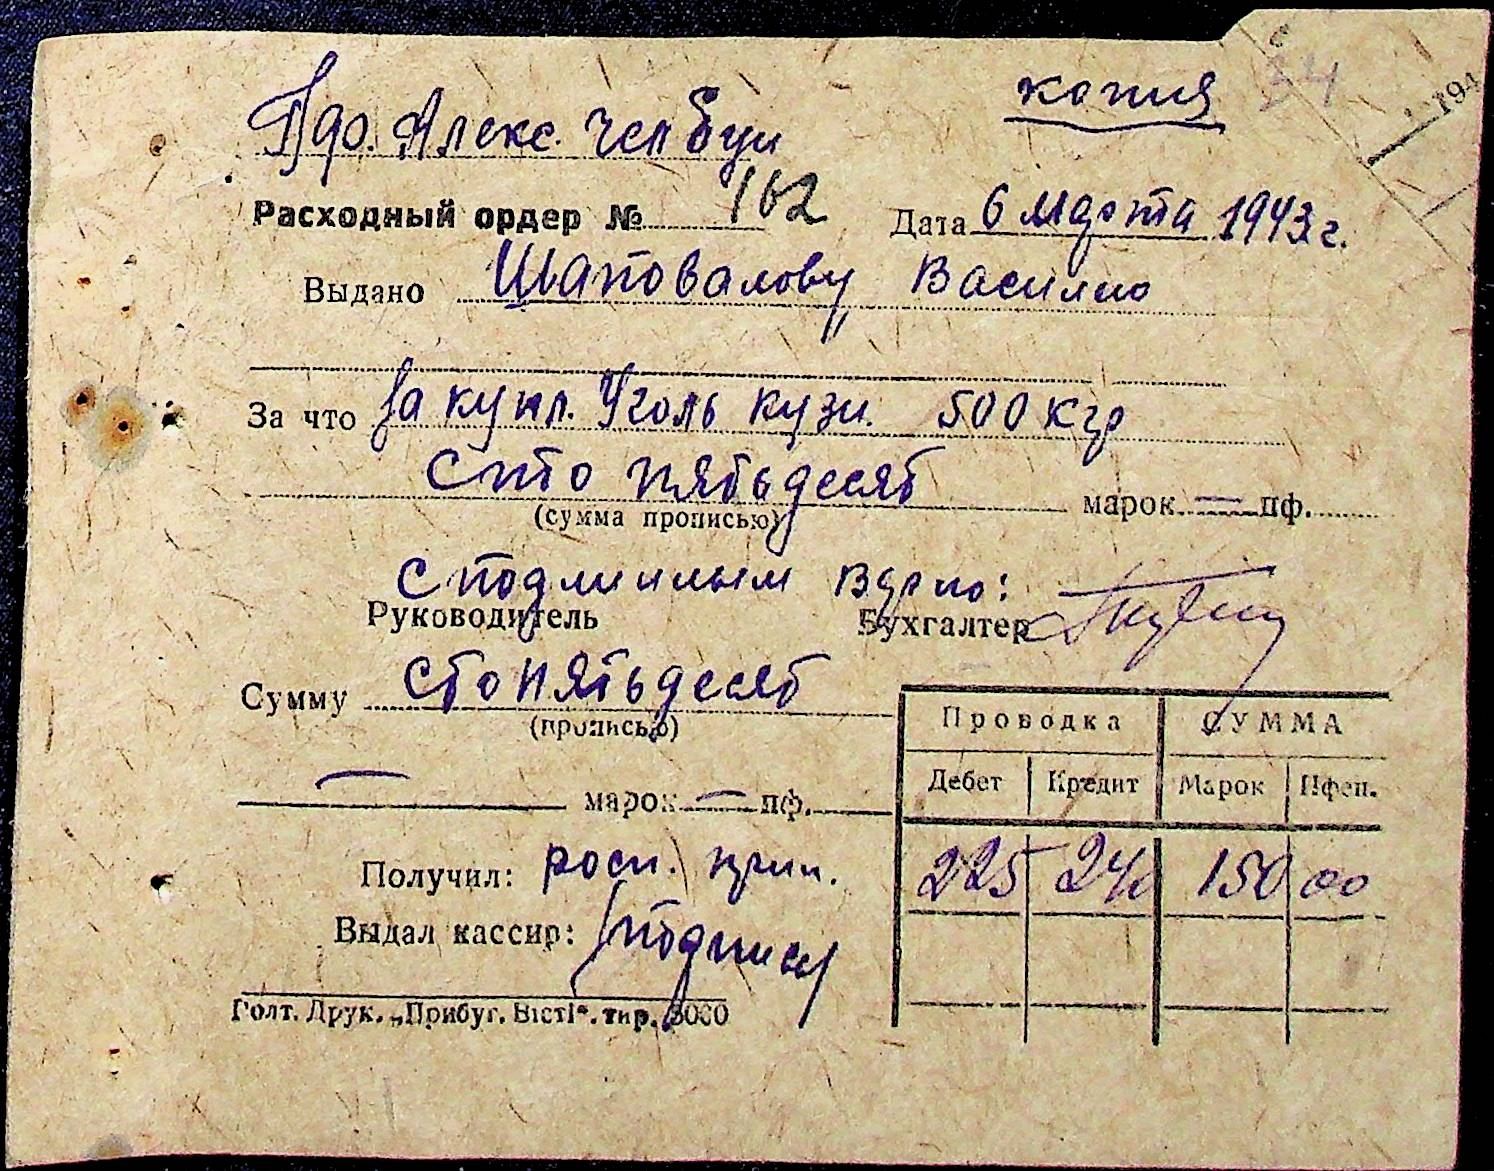 копия 34
194
Пдо. Алекс.
Расходный ордер № 162 Дата 6 марта 1943 г.
Выдано Шаповалову Василию
За что За купл. Уголь кузн. 500 кгр
Сто пятьдесят марок — пф.
(сумма прописью)
С подлинным верно:
Руководитель Бухгалтер
Сумму сто пятьдесят
(прописью)
— марок — пф.
Проводка СУММА
Дебет Кредит Марок Пфен.
225 240 150 00
Получил: росп.
Выдал кассир: (подпись)
Голт. Друк. „Прибуг. Вісті“. тир. 3000